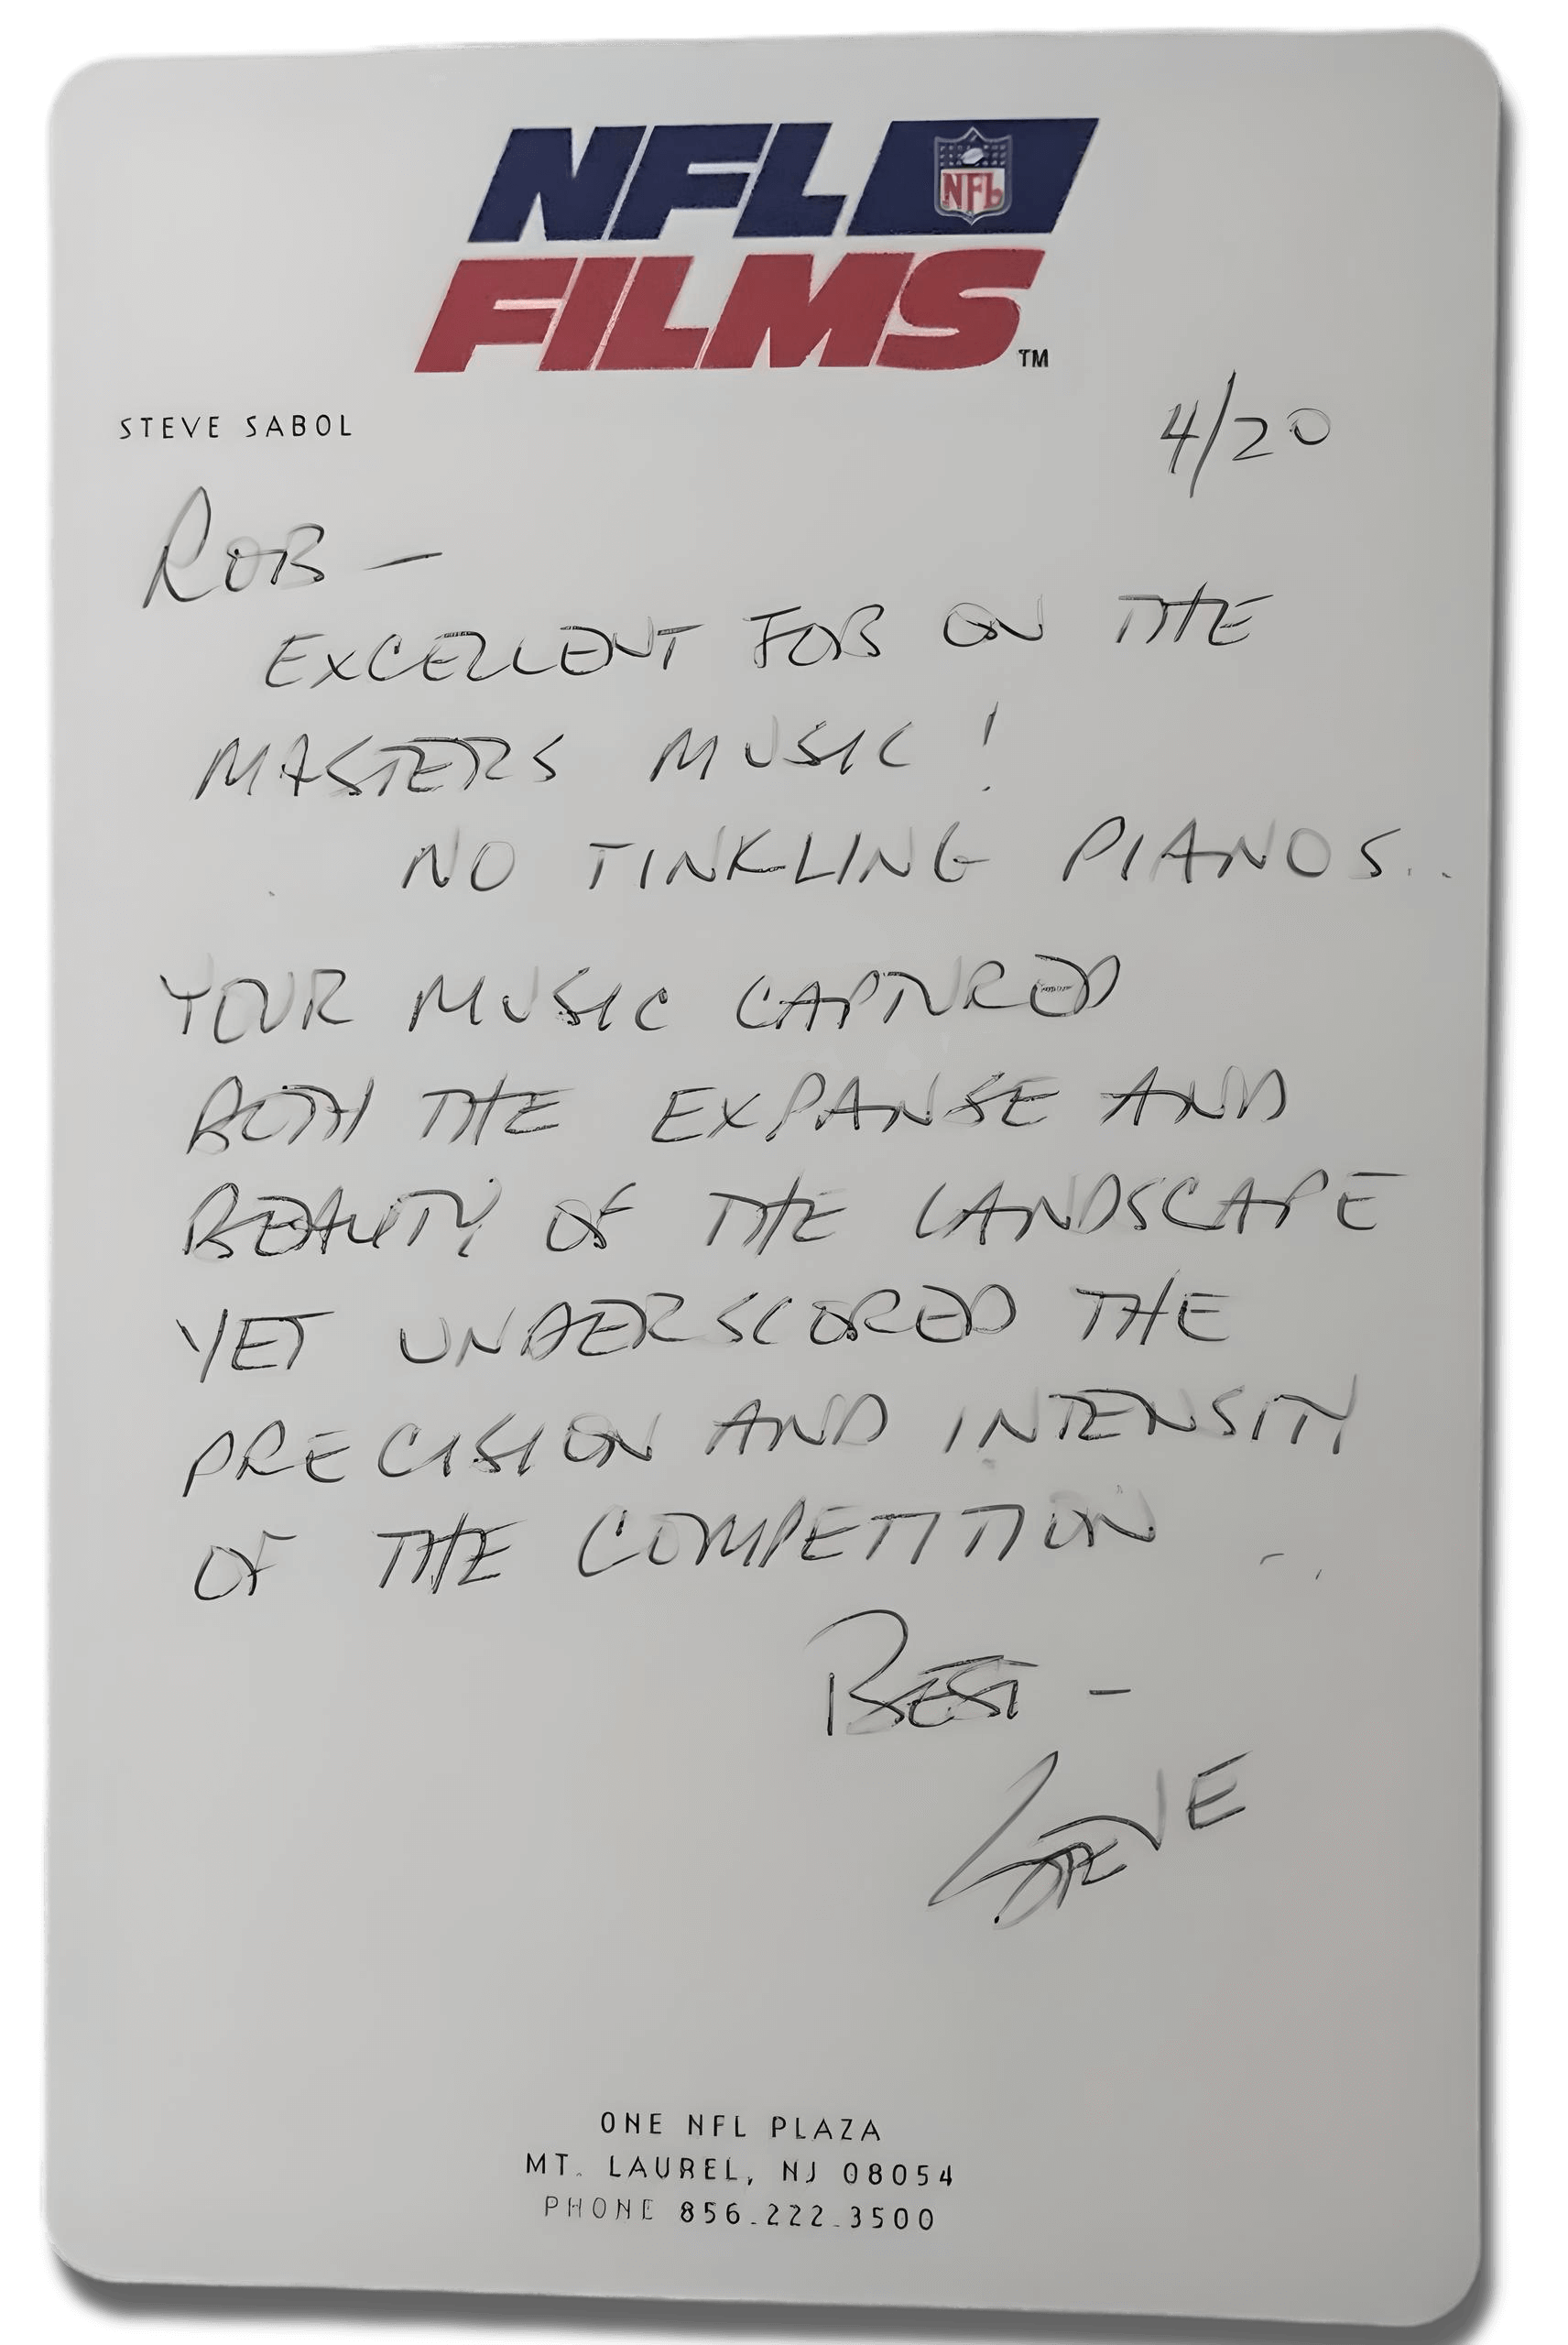 NFL NFL
FILMS TM
STEVE SABOL
4/20
ROB —
EXCELLENT JOB ON THE
MASTERS MUSIC!
NO TINKLING PIANOS..
YOUR MUSIC CAPTURED
BOTH THE EXPANSE AND
BEAUTY OF THE LANDSCAPE
YET UNDERSCORED THE
PRECISION AND INTENSITY
OF THE COMPETITION ..
BEST —
STEVE
ONE NFL PLAZA
MT. LAUREL, NJ 08054
PHONE 856.222.3500